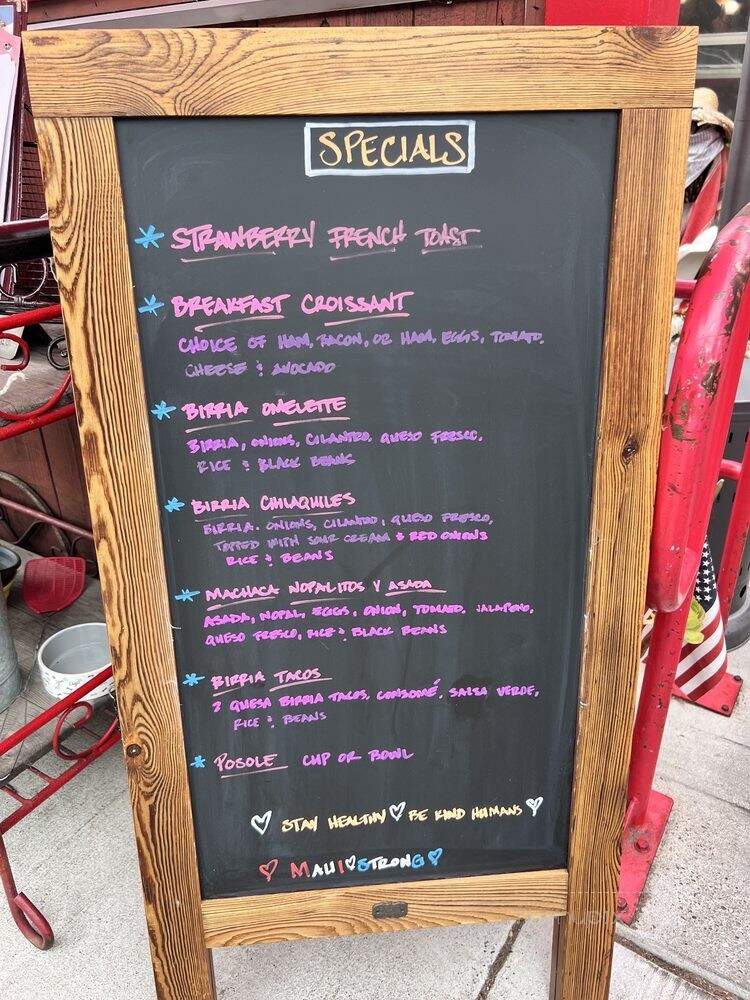 SPECIALS
* STRAWBERRY FRENCH TOAST
* BREAKFAST CROISSANT
CHOICE OF HAM, BACON, OR HAM, EGGS, TOMATO,
CHEESE & AVOCADO
* BIRRIA OMELETTE
BIRRIA, ONIONS, CILANTRO, QUESO FRESCO,
RICE & BLACK BEANS
* BIRRIA CHILAQUILES
BIRRIA, ONIONS, CILANTRO, QUESO FRESCO,
TOPPED WITH SOUR CREAM & RED ONIONS
RICE & BEANS
* MACHACA NOPALITOS Y ASADA
ASADA, NOPAL, EGGS, ONION, TOMATO, JALAPENO,
QUESO FRESCO, RICE & BLACK BEANS
* BIRRIA TACOS
QUESA BIRRIA TACOS, CONSOMÉ, SALSA VERDE,
RICE & BEANS
* POSOLE CUP OR BOWL
♡ STAY HEALTHY ♡ BE KIND HUMANS ♡
♡ MAUI ♡ STRONG ♡